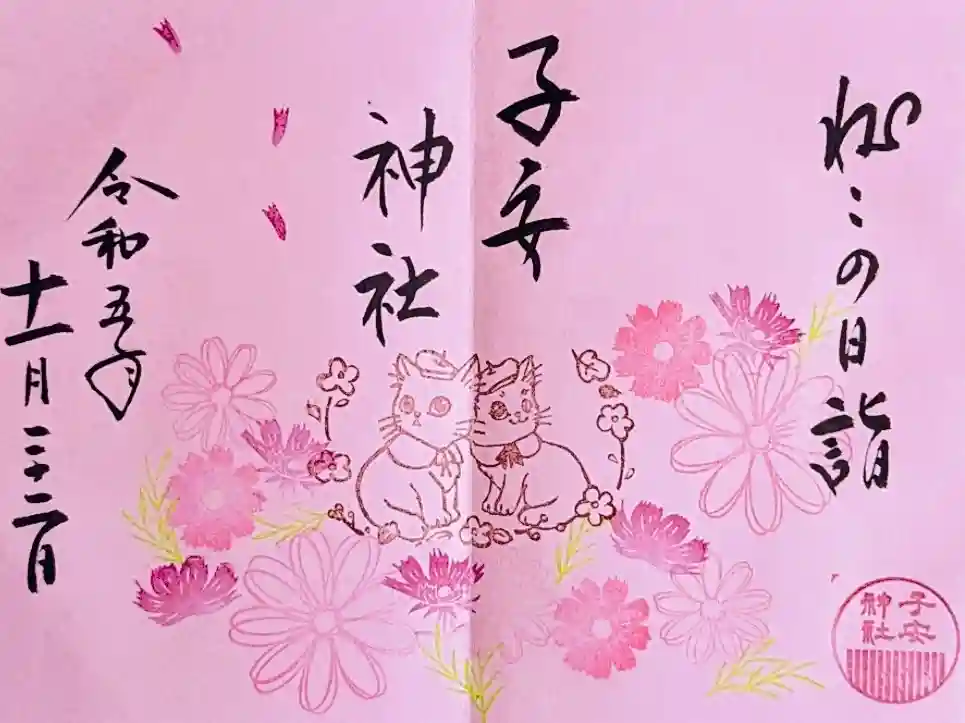 ねこの日詣
子安
神社
令和五年
十一月二十二日
子安
神社